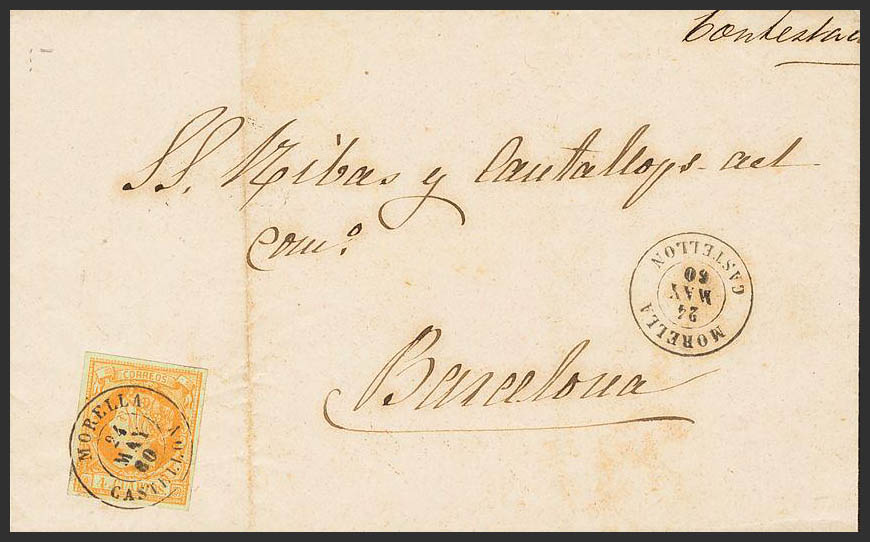 Contestad
SS. Ribas y Cantallops del
com.º
Barcelona
MORELLA
24
MAY
60
CASTELLON
CORREOS
MORELLA
24
MAY
60
CASTELLON